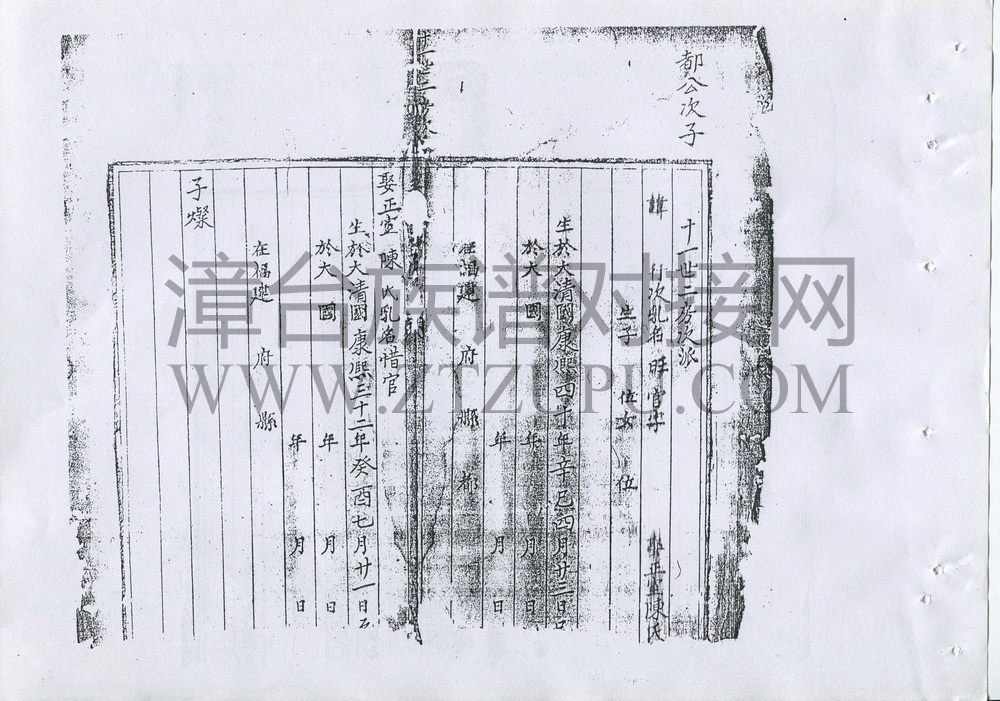 都公次子
十一世二房次派
諱 行次乳名旺官字 正室陳氏
生子 位女 位
生於大清國康熙四十年辛巳四月廿三日
於大國 年 月 日
年 月
在福建 府 縣 都
娶正室陳氏乳名惜官
生於大清國康熙三十二年癸酉七月廿一日
於大國 年 月 日
年 月 日
在福建 府 縣
子燦
漳台族谱对接网
WWW.ZTZUPU.COM